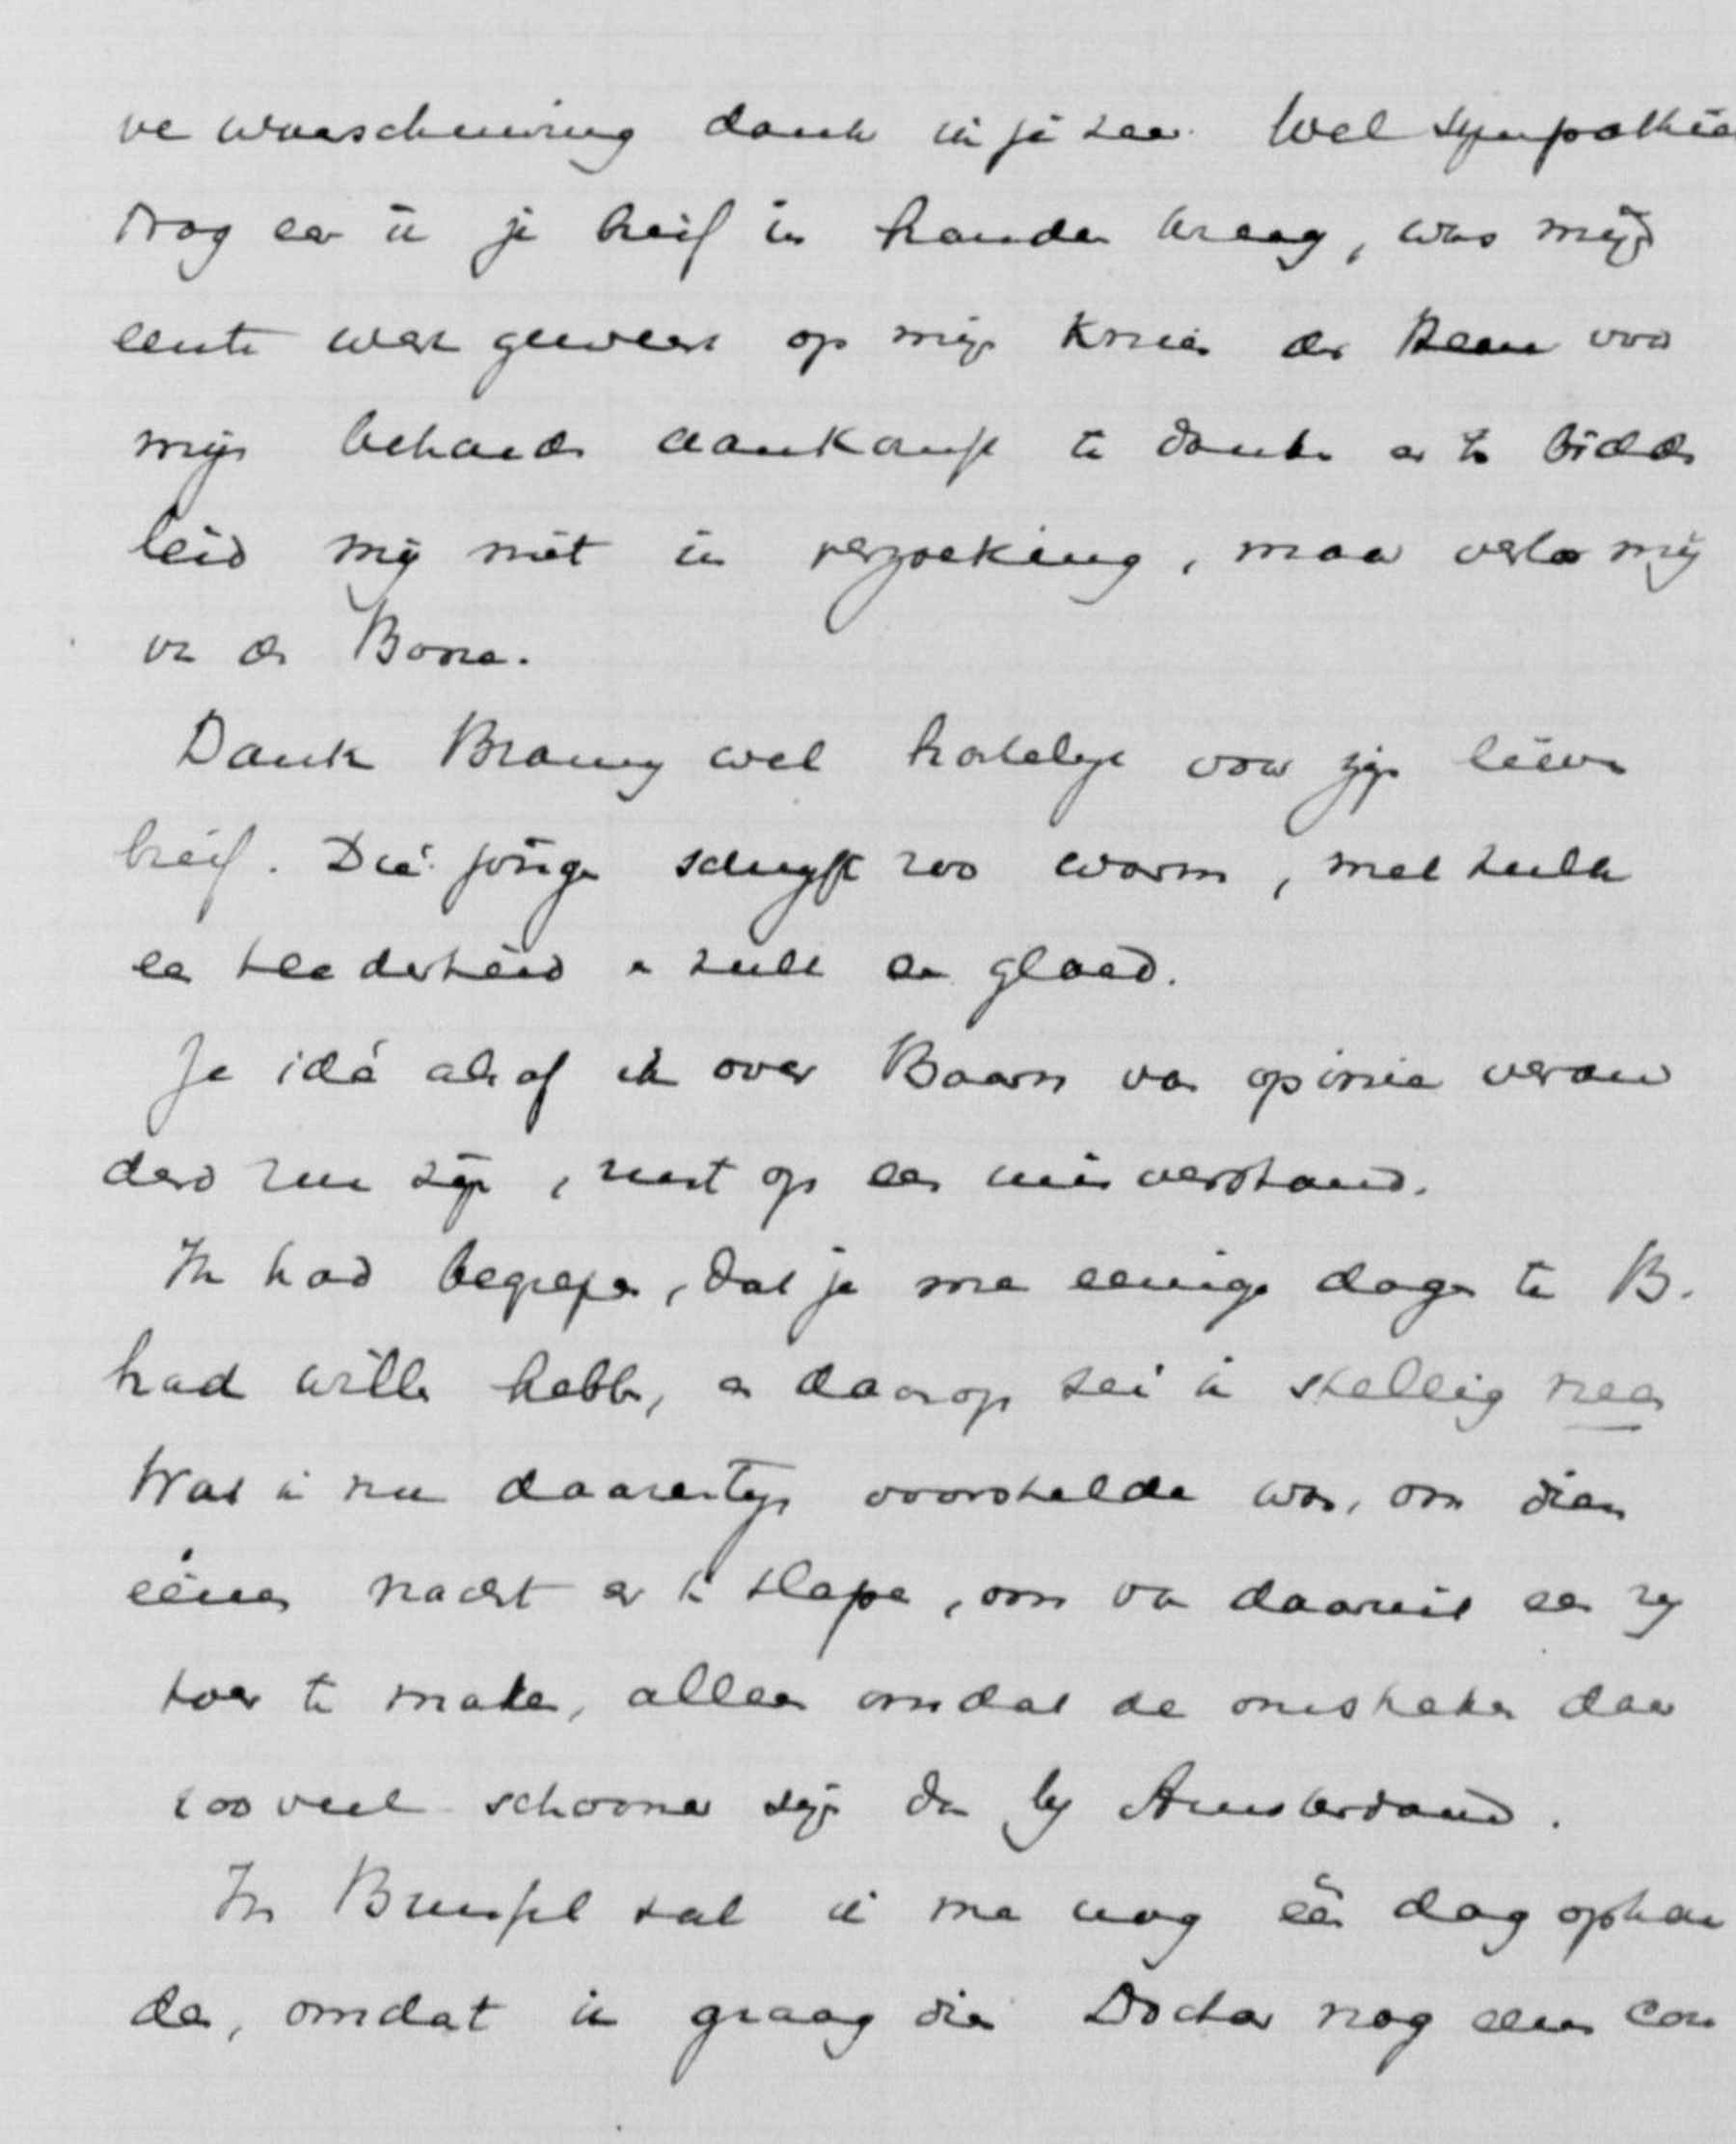 ve waarschuwing dank ik je zeer. Wel sympathie
Nog eer ik je brief in handen kreeg, was mijn
eerste werk geweest op mijn knieën den Heere voor
mijn behouden aankomst te danken en te bidden
leid mij niet in verzoeking, maar verlos mij
van den Booze.
Dank Bramy wel hartelijk voor zijn lieven
brief. Die jongen schrijft zoo warm, met zulk
een teederheid en zulk een gloed.
Je idé alsof ik over Baarn van opinie veran
derd zou zijn, rust op een misverstand.
Ik had begrepen, dat je me eenige dagen te B.
had willen hebben, en daarop zei ik stellig neen
Wat ik nu daarentegen voorstelde was, om dien
éénen nacht er te slapen, om van daaruit een rij
toer te maken, alleen omdat de omstreken daar
zooveel schooner zijn dan bij Amsterdam.
In Brussel zal ik me nog één dag ophou
den, omdat ik graag dien Doctor nog eens con